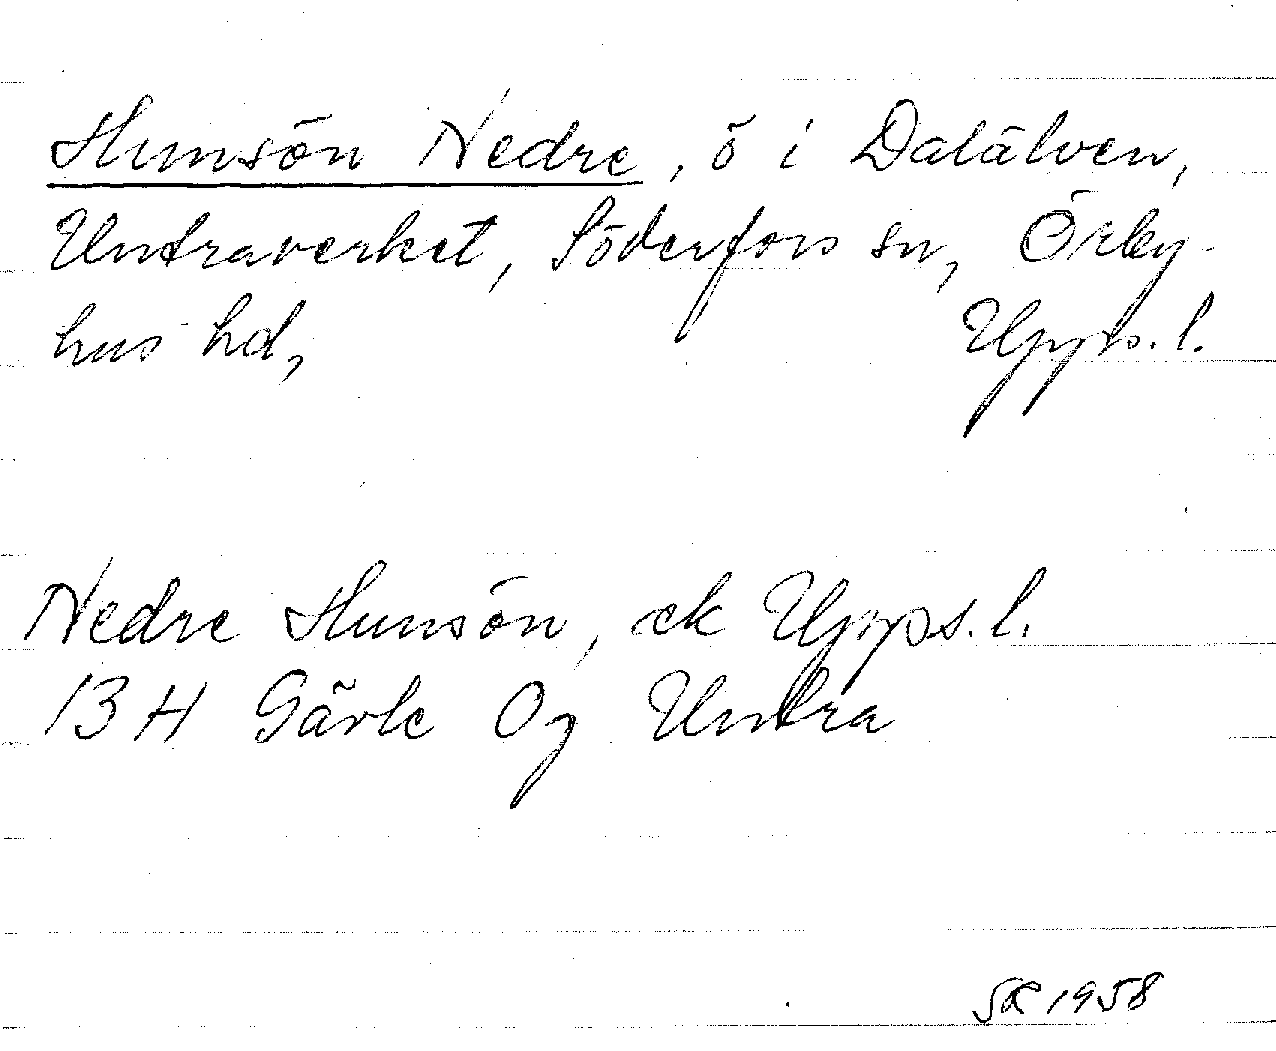 Hunsön Nedre, ö i Dalälven,
Untraverket, Söderfors sn, Örby-
hus hd, Upps. l.
Nedre Hunsön, ek Upps. l.
13 H Gävle Og Untra
SR 1958